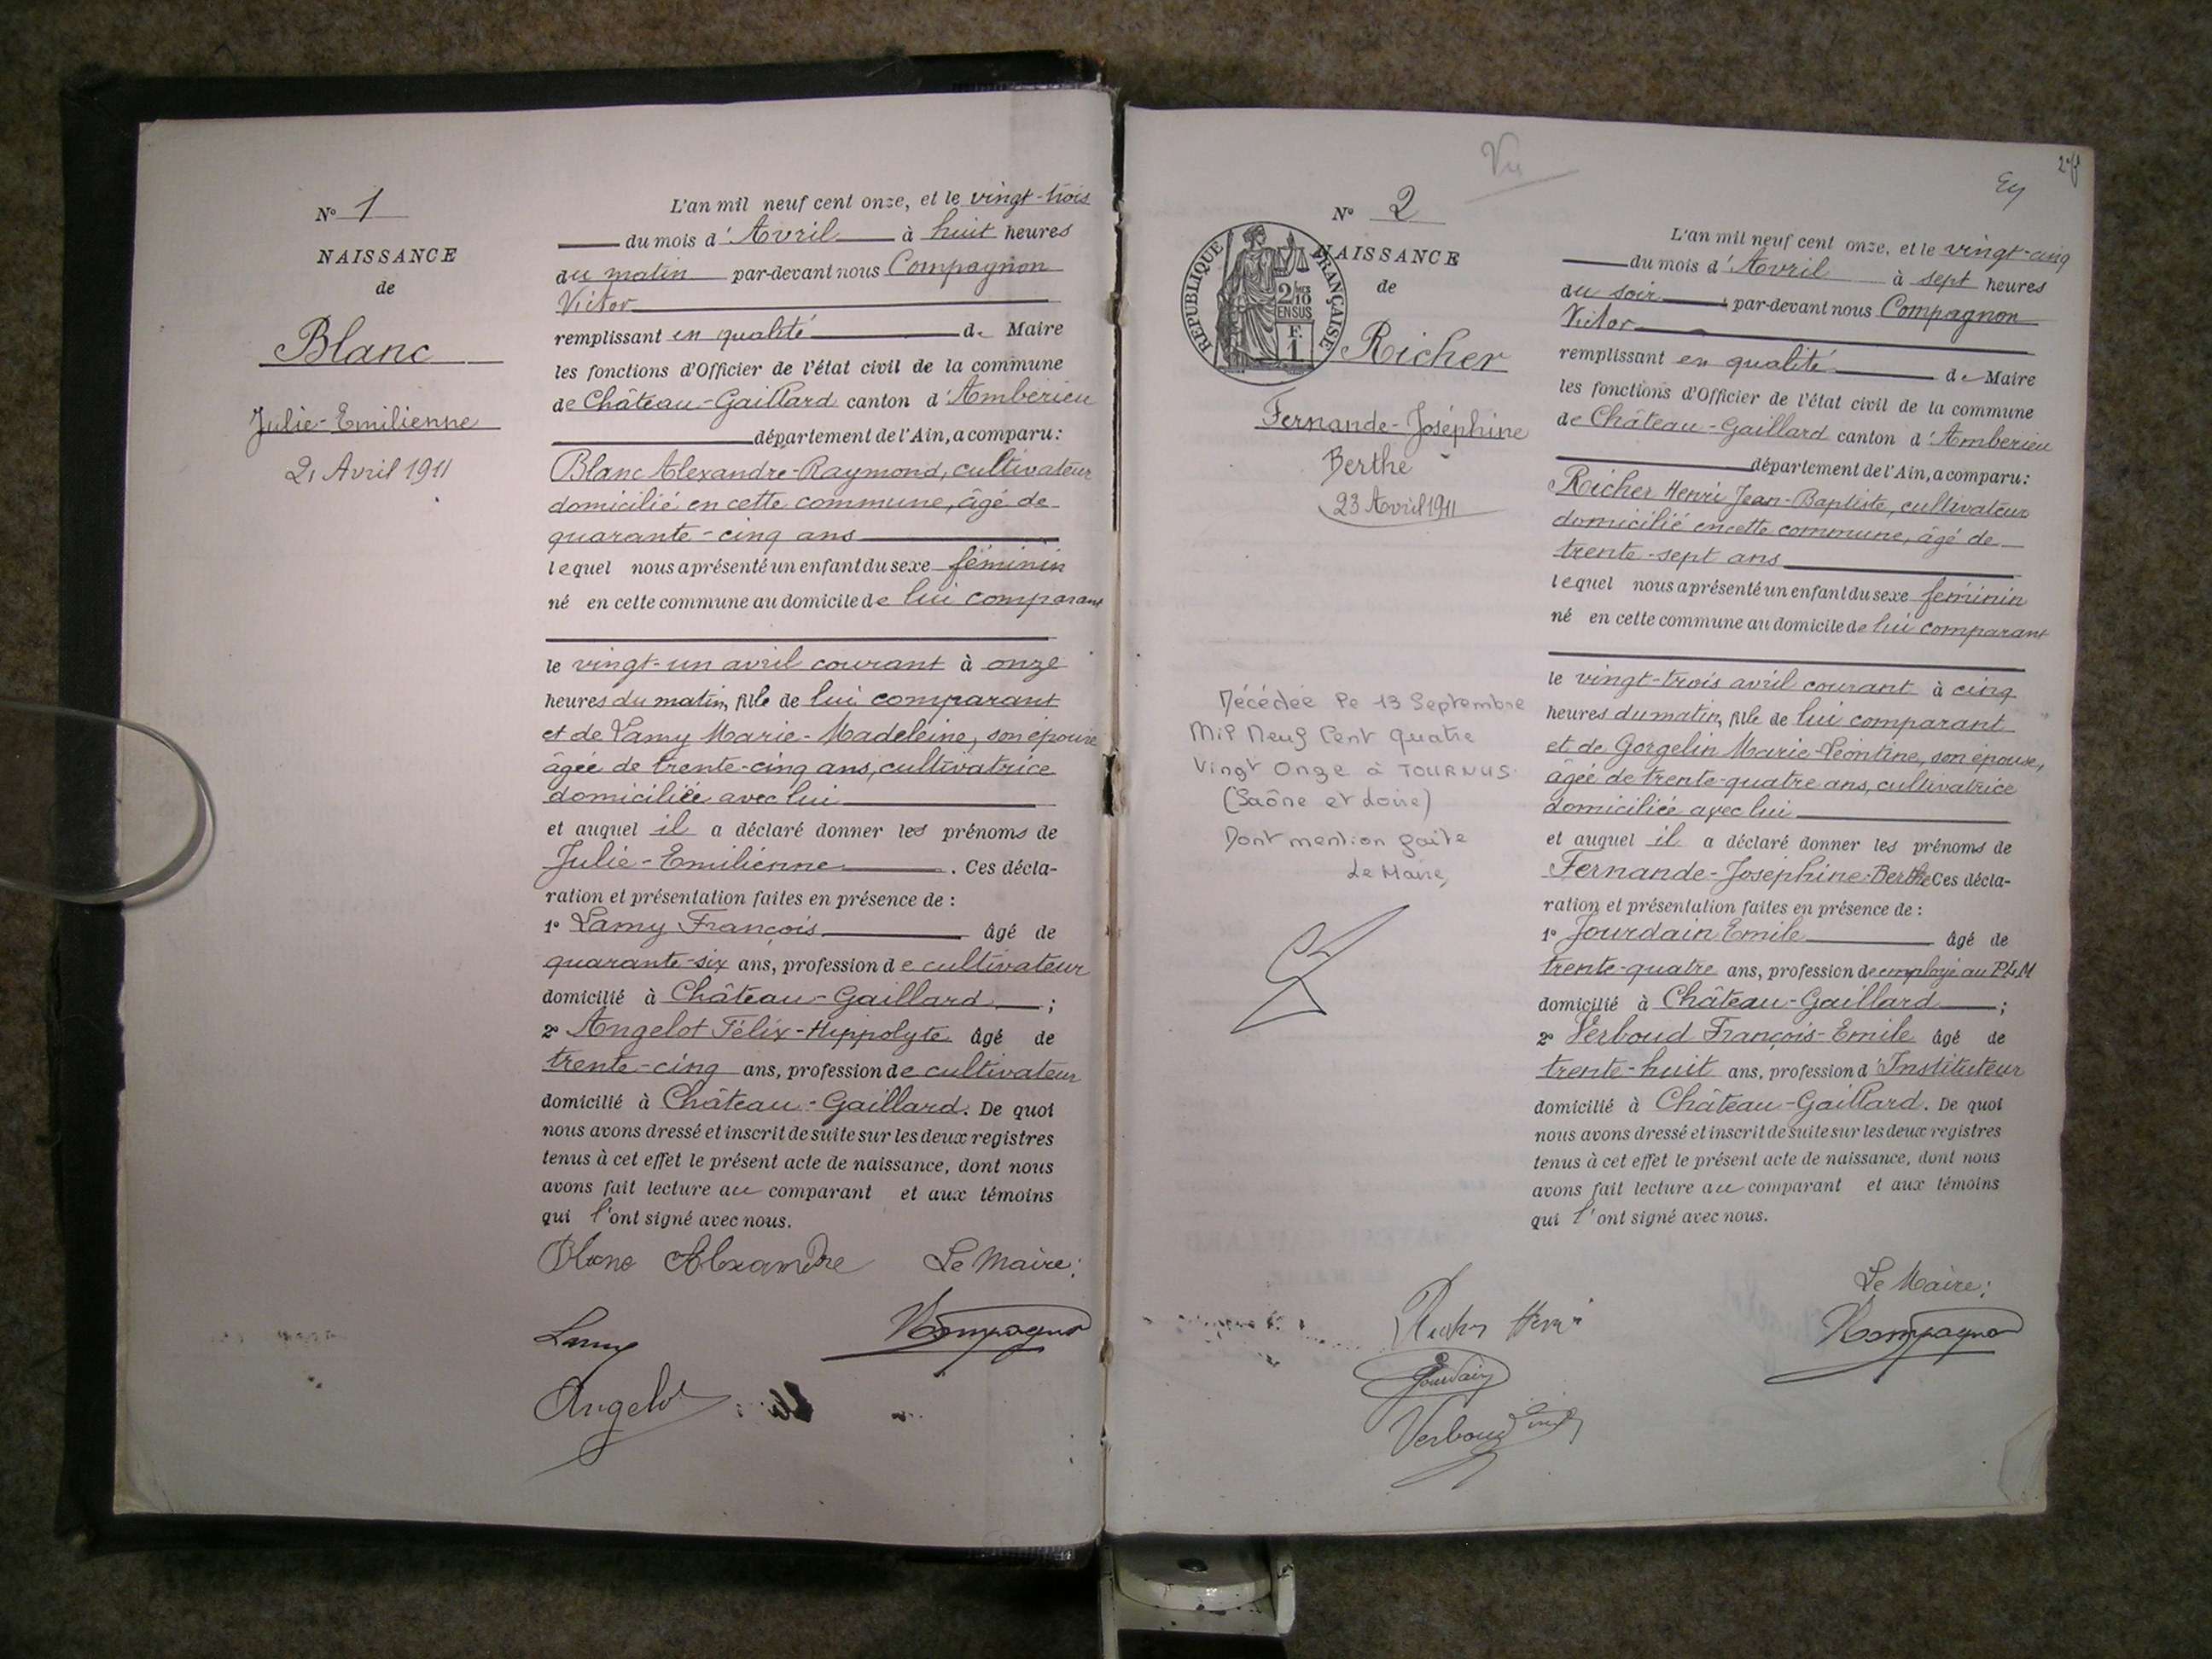 N° 1
NAISSANCE
de
Blanc
Julie-Emilienne
21 Avril 1911
L'an mil neuf cent onze, et le vingt-trois
du mois d'Avril à huit heures
du matin par-devant nous Compagnon
Victor
remplissant en qualité de Maire
les fonctions d'Officier de l'état civil de la commune
de Château-Gaillard canton d'Ambérieu
département de l'Ain, a comparu :
Blanc Alexandre-Raymond, cultivateur
domicilié en cette commune, âgé de
quarante-cinq ans
lequel nous a présenté un enfant du sexe féminin
né en cette commune au domicile de lui comparant
le vingt-un avril courant à onze
heures du matin, fille de lui comparant
et de Lamy Marie-Madeleine, son épouse
âgée de trente-cinq ans, cultivatrice
domiciliée avec lui
et auquel il a déclaré donner les prénoms de
Julie-Emilienne. Ces décla-
ration et présentation faites en présence de :
1° Lamy François âgé de
quarante-six ans, profession de cultivateur
domicilié à Château-Gaillard ;
2° Angelot Félix-Hippolyte âgé de
trente-cinq ans, profession de cultivateur
domicilié à Château-Gaillard. De quoi
nous avons dressé et inscrit de suite sur les deux registres
tenus à cet effet le présent acte de naissance, dont nous
avons fait lecture au comparant et aux témoins
qui l'ont signé avec nous.
Blanc Alexandre Le Maire :
Lamy VCompagnon
Angelot
Vu
2 f
N° 2
NAISSANCE
de
REPUBLIQUE FRANÇAISE
2/10 EN SUS
F. 1
Richer
Fernande-Joséphine
Berthe
23 Avril 1911
Décédée le 13 Septembre
Mil Neuf Cent Quatre
Vingt Onze à TOURNUS
(Saône et Loire)
Dont mention faite
Le Maire,
L'an mil neuf cent onze, et le vingt-cinq
du mois d'Avril à sept heures
du soir, par-devant nous Compagnon
Victor
remplissant en qualité de Maire
les fonctions d'Officier de l'état civil de la commune
de Château-Gaillard canton d'Ambérieu
département de l'Ain, a comparu :
Richer Henri Jean-Baptiste, cultivateur
domicilié en cette commune, âgé de
trente-sept ans
lequel nous a présenté un enfant du sexe féminin
né en cette commune au domicile de lui comparant
le vingt-trois avril courant à cinq
heures du matin, fille de lui comparant
et de Gorgelin Marie-Léontine, son épouse,
âgée de trente-quatre ans, cultivatrice
domiciliée avec lui
et auquel il a déclaré donner les prénoms de
Fernande-Joséphine-Berthe Ces décla-
ration et présentation faites en présence de :
1° Jourdain Emile âgé de
trente-quatre ans, profession de employé au PLM
domicilié à Château-Gaillard ;
2° Verboud François-Emile âgé de
trente-huit ans, profession d'Instituteur
domicilié à Château-Gaillard. De quoi
nous avons dressé et inscrit de suite sur les deux registres
tenus à cet effet le présent acte de naissance, dont nous
avons fait lecture au comparant et aux témoins
qui l'ont signé avec nous.
Le Maire :
Richer Henri VCompagnon
Jourdain
Verboud